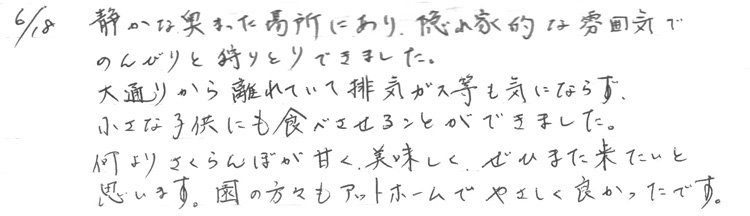 6/18 静かな奥まった場所にあり、隠れ家的な雰囲気で
のんびりと狩りとりできました。
大通りから離れていて排気ガス等も気にならず、
小さな子供にも食べさせることができました。
何よりさくらんぼが甘く、美味しく、ぜひまた来たいと
思います。園の方々もアットホームでやさしく良かったです。